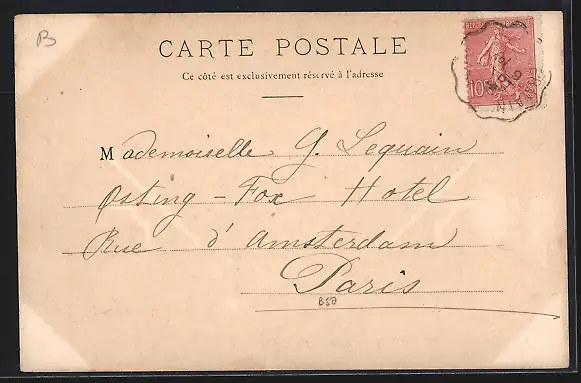 B
CARTE POSTALE
Ce côté est exclusivement réservé à l'adresse
10
Mademoiselle G. Lequain
Osting - Fox Hotel
Rue d'Amsterdam
Paris
B50